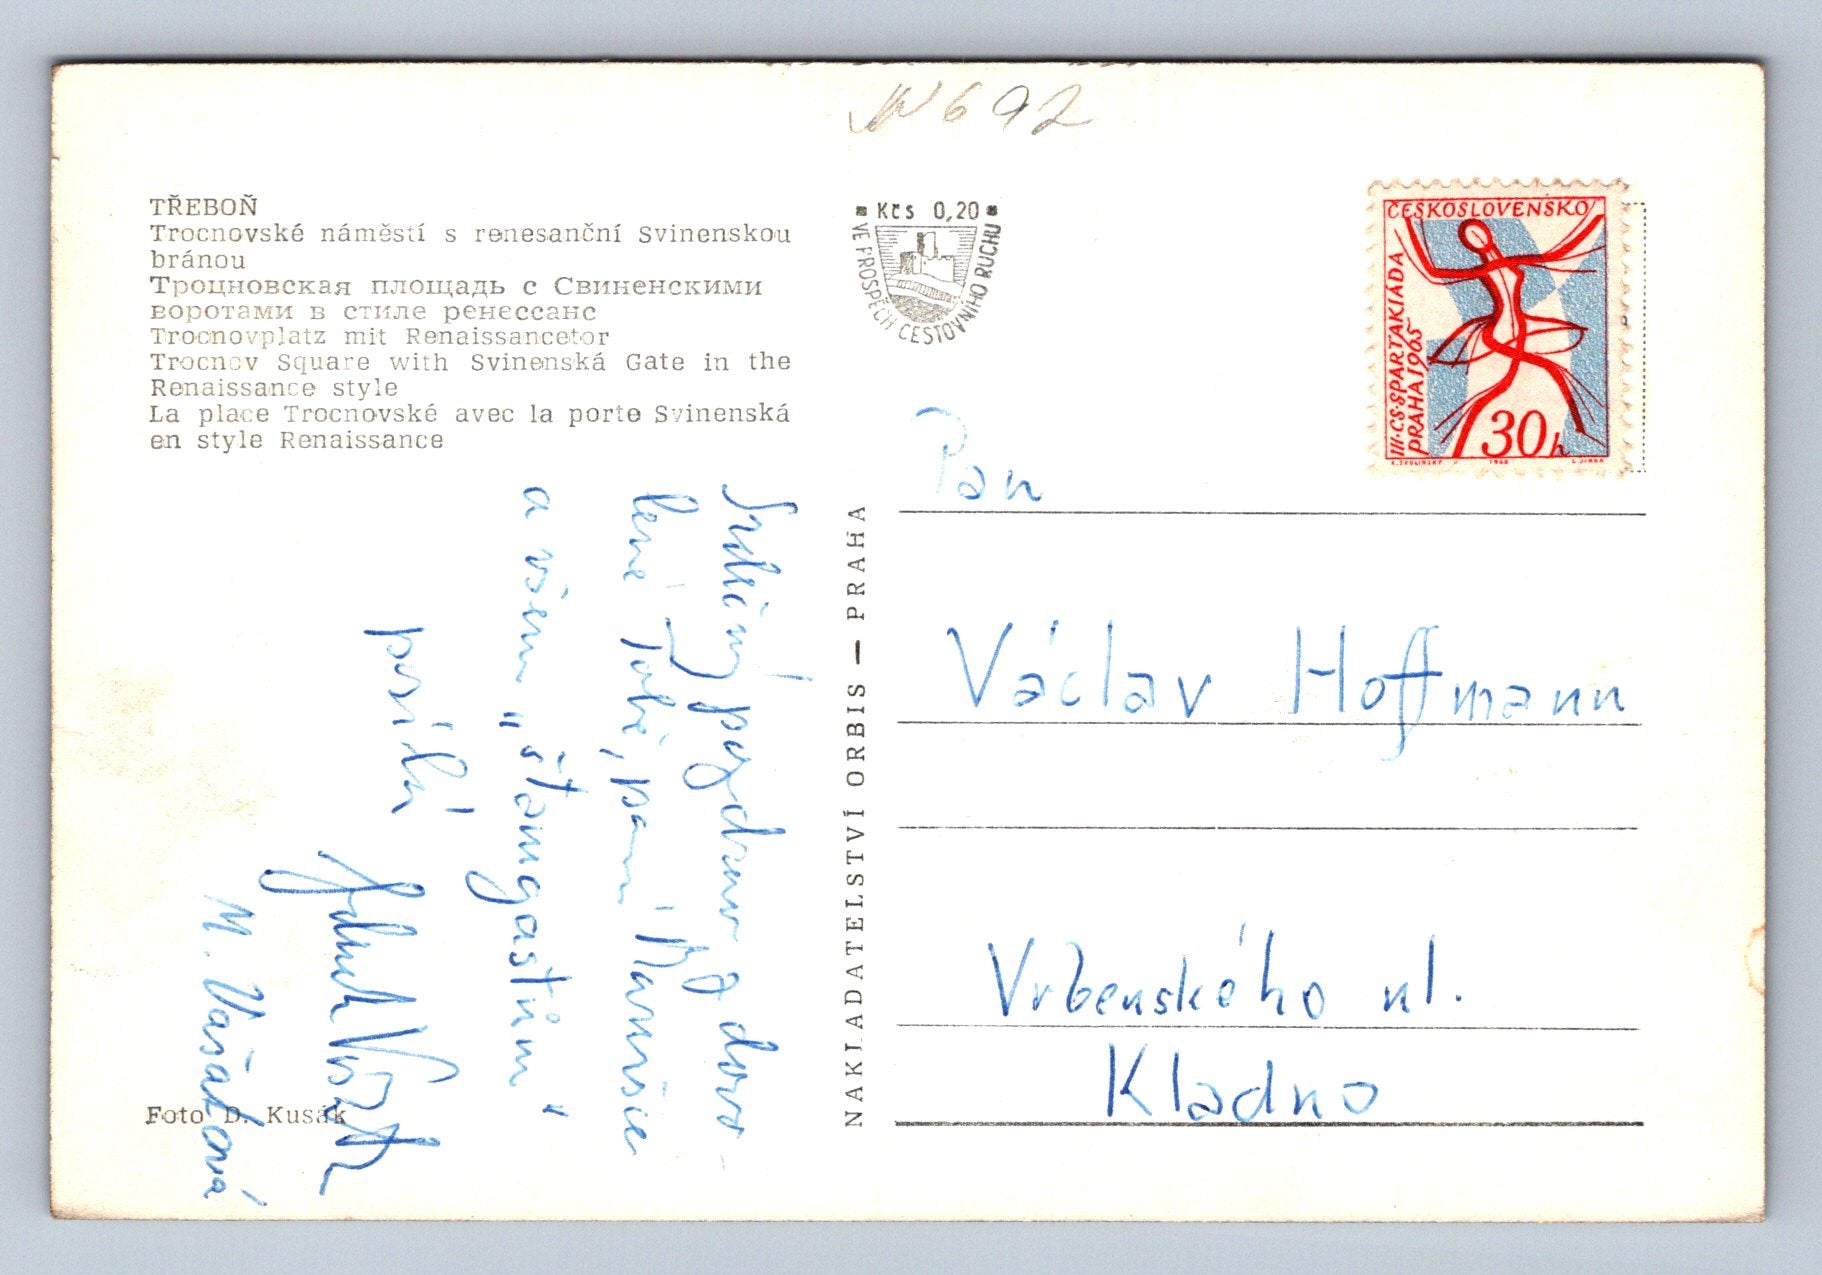 N 692
TŘEBOŇ
Trocnovské náměstí s renesanční Svinenskou
bránou
Троцновская площадь с Свиненскими
воротами в стиле ренессанс
Trocnovplatz mit Renaissancetor
Trocnov Square with Svinenská Gate in the
Renaissance style
La place Trocnovské avec la porte Svinenská
en style Renaissance
Srdečný pozdrav z dovo-
lené Tobě, paní Maruš
a všem „štamgastům“
posílá
M. Vašáková
Foto D. Kusák
NAKLADATELSTVÍ ORBIS — PRAHA
Kčs 0,20
VE PROSPĚCH CESTOVNÍHO RUCHU
ČESKOSLOVENSKO
III·CS·SPARTAKIÁDA
PRAHA 1965
30h
K. SVOLINSKÝ 1965 L. JIRKA
Pan
Václav Hoffmann
Vrbenského ul.
Kladno